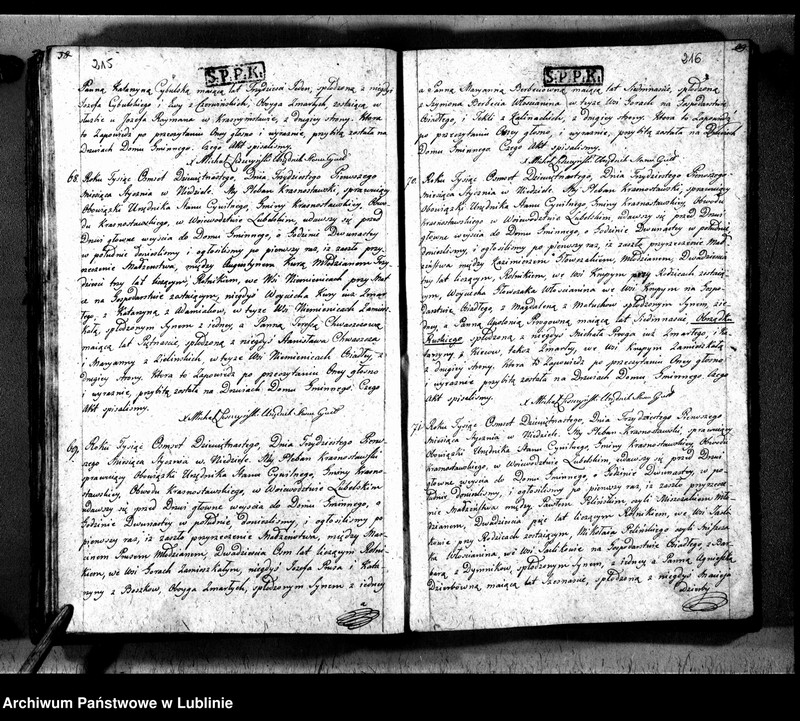 38.
215
S.P.P.K.
Panna Katarzyna Cybulska maiąca lat Trzydzieści Jeden, spłodzona z niegdyś
Jozefa Cybulskiego i Ewy z Czerwińskich, Oboyga Zmarłych, zostaiąca w
służbie u Jozefa Roymana w Krasnymstawie, z drugiey strony. Ktora
to Zapowiedź po przeczytaniu Oney głośno i wyraźnie, przybitą została na
Drzwiach Domu Gminnego. Czego Akt spisaliśmy.
X Michał Urzędnik Stanu Cywil
68. Roku Tysiąc Osmset Dziewiętnastego, Dnia Trzydziestego Pierwszego
Miesiąca Stycznia w Niedziele. My Pleban Krasnostawski, sprawuiący
Obowiązki Urzędnika Stanu Cywilnego, Gminy Krasnostawskiey, Obwo-
du Krasnostawskiego, w Woiewodztwie Lubelskim, udawszy się przed
Drzwi głowne weyścia do Domu Gminnego, o Godzinie Dwunastey
w południe donieśliśmy, i ogłosiliśmy po pierwszy raz, iż zaszło przy-
rzeczenie Małżeństwa, między Augustynem Kurą Młodzianem Trzy-
dzieści trzy lat liczącym, Rolnikiem, we Wsi Niemienicach przy Matce
na Gospodarstwie zostaiącym, niegdyś Woyciecha Kury iuż Zmar-
łego, i Katarzyny z Adamiakow, w tyże Wsi Niemienicach Zamiesz-
kałey, spłodzonym Synem z iedney, a Panną Teresą Chwaszczowną
maiącą lat Piętnaście, spłodzoną z niegdyś Stanisława Chwaszcza
i Maryanny z Zielińskich, w tyże Wsi Niemienicach Osiadłey, z
drugiey strony. Ktora to Zapowiedź po przeczytaniu Oney głośno
i wyraźnie, przybitą została na Drzwiach Domu Gminnego. Czego
Akt spisaliśmy.
X Michał Urzędnik Stanu Cywil
69. Roku Tysiąc Osmset Dziewiętnastego, Dnia Trzydziestego Pierw-
szego Miesiąca Stycznia w Niedziele. My Pleban Krasnostawski
sprawuiący Obowiązki Urzędnika Stanu Cywilnego, Gminy Krasno-
stawskiey, Obwodu Krasnostawskiego, w Woiewodztwie Lubelskim,
udawszy się przed Drzwi głowne weyścia do Domu Gminnego, o
Godzinie Dwunastey w południe, donieśliśmy, i ogłosiliśmy po
pierwszy raz, iż zaszło przyrzeczenie Małżeństwa, między Mar-
cinem Prusem Młodzianem, Dwadzieścia Osm lat liczącym Rolni-
kiem, we Wsi Gorach Zamieszkałym, niegdyś Jozefa Prusa i Kata-
rzyny z Boszkow, Oboyga Zmarłych, spłodzonym Synem z iedney
216
S.P.P.K.
a Panną Maryanną Berbeciowną, maiącą lat Siedmnaście, spłodzoną
z Szymona Berbecia Włościanina w tyże Wsi Gorach na Gospodarstwie
Osiadłego, i Tekli z Kalinackich, z drugiey strony. Ktora to Zapowiedź
po przeczytaniu Oney głośno, i wyraźnie, przybitą została na Drzwiach
Domu Gminnego. Czego Akt spisaliśmy.
X Michał Urzędnik Stanu Cywil
70. Roku Tysiąc Osmset Dziewiętnastego, Dnia Trzydziestego Pierwszego
Miesiąca Stycznia w Niedziele. My Pleban Krasnostawski, sprawuiący
Obowiązki Urzędnika Stanu Cywilnego, Gminy Krasnostawskiey, Obwodu
Krasnostawskiego w Woiewodztwie Lubelskim, udawszy się przed Drzwi
głowne weyścia do Domu Gminnego, o Godzinie Dwunastey w południe
donieśliśmy, i ogłosiliśmy po pierwszy raz, iż zaszło przyrzeczenie Mał-
żeństwa między Kazimierzem Młodzianem, Dwadzieścia
trzy lat liczącym, Rolnikiem, we Wsi Krupym przy Rodzicach zostaią-
cym, Woyciecha Włościanina we Wsi Krupym na Gospo-
darstwie Osiadłego z Magdaleną z Matuchow spłodzonym Synem, z ie-
dney, a Panną Apolonią maiącą lat Siedmnaście Obrządku
Ruskiego spłodzoną z niegdyś Michała iuż Zmarłego, i Ka-
tarzyny z także Zmarłey, we Wsi Krupym Zamieszkałą
z drugiey strony. Ktora to Zapowiedź po przeczytaniu Oney głośno
i wyraźnie, przybitą została na Drzwiach Domu Gminnego Czego
Akt spisaliśmy.
X Michał Urzędnik Stanu Cywil
71. Roku Tysiąc Osmset Dziewiętnastego, Dnia Trzydziestego Pierwszego
Miesiąca Stycznia w Niedziele. My Pleban Krasnostawski, sprawuiący
Obowiązki Urzędnika Stanu Cywilnego, Gminy Krasnostawskiey Obwodu
Krasnostawskiego, w Woiewodztwie Lubelskim udawszy się przed Drzwi
głowne weyścia do Domu Gminnego, o Godzinie Dwunastey, w po-
łudnie, donieśliśmy, i ogłosiliśmy po pierwszy raz, iż zaszło przyrzecze-
nie Małżeństwa między Pawłem czyli Mło-
dzianem, Dwadzieścia pięć lat liczącym Rolnikiem, we Wsi
przy Rodzicach zostaiącym, Mikołaia czyli
Włościanina, we Wsi na Gospodarstwie Osiadłego z Bar-
barą z Dynnikow, spłodzonym Synem, z iedney a Panną Agnieszką
maiącą lat Szesnaście, spłodzoną z niegdyś Macieia
Archiwum Państwowe w Lublinie